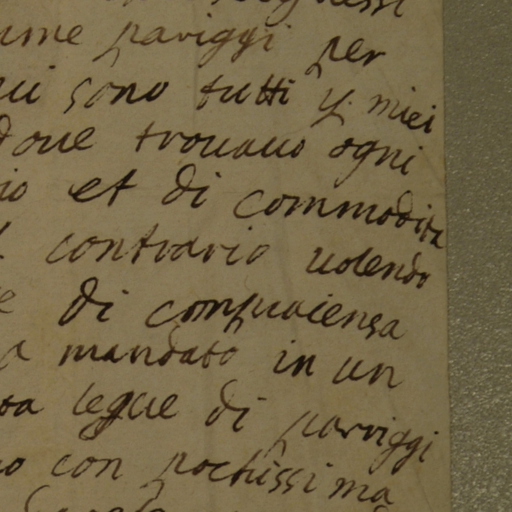 ume pariggi per
ui sono tutti y miei
doue trouauo ogni
io et di commodita
contrario uolendo
e di conpiacensa
a mandato in un
ta legue di pariggi
o con pochissima